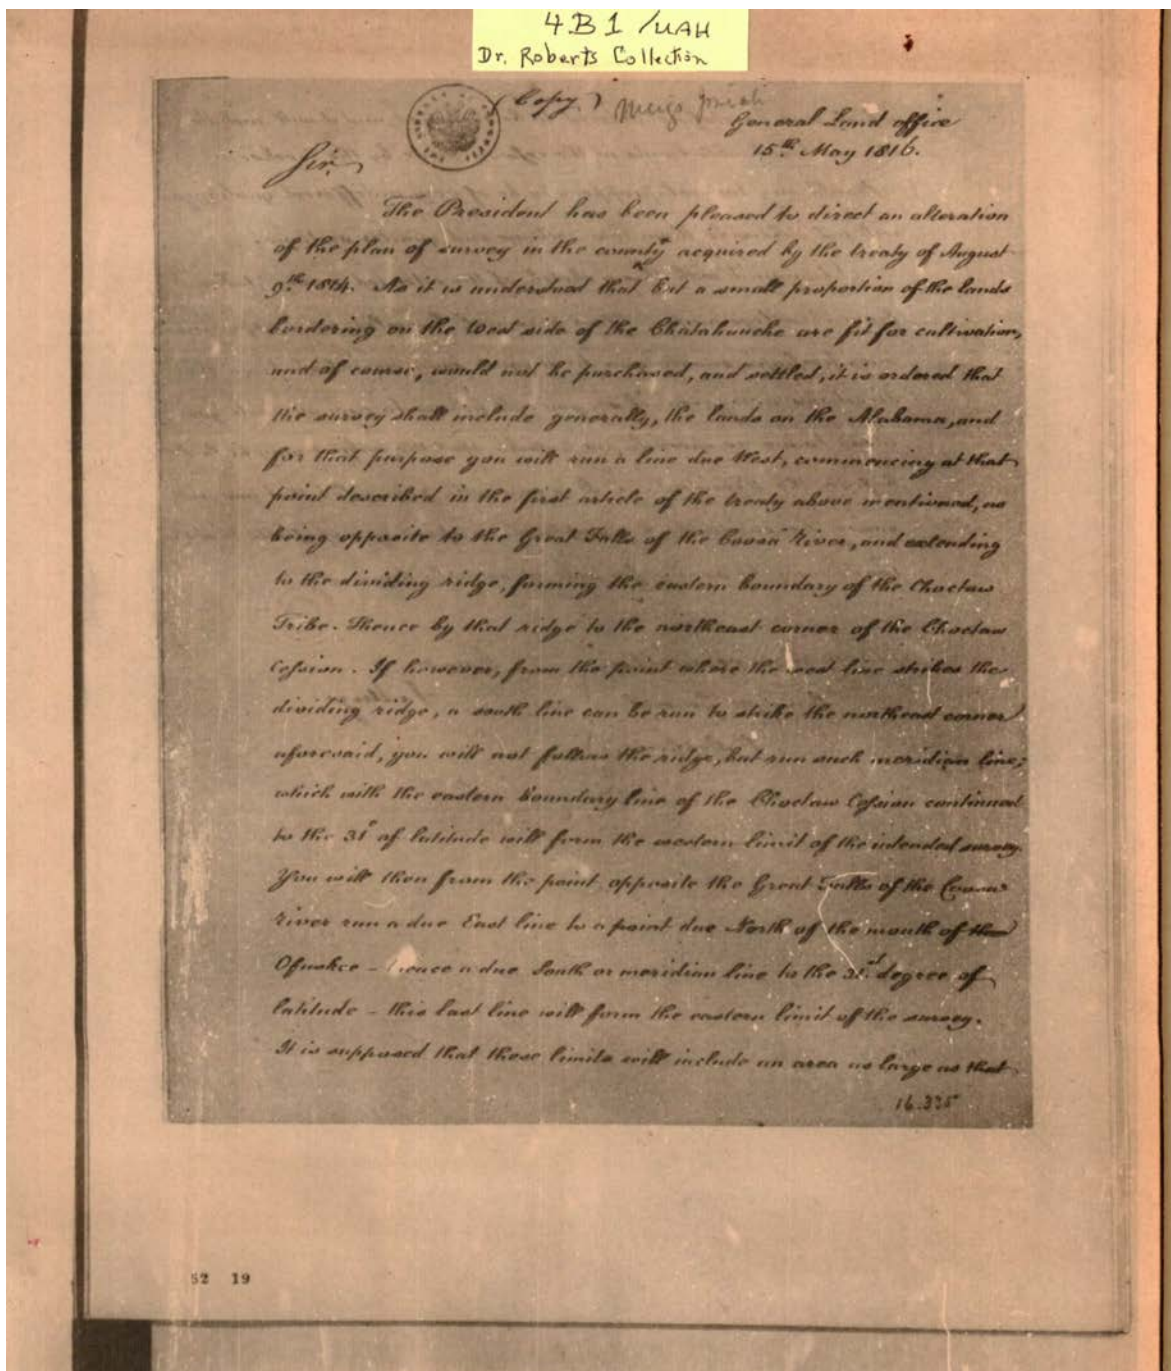 4B1/UAH
Dr. Roberts Collection
(Copy.) Meigs Josiah
General Land office
15th May 1816.
Sir,
The President has been pleased to direct an alteration
of the plan of survey in the county acquired by the treaty of August
9th 1814. As it is understood that but a small proportion of the lands
bordering on the West side of the Chatahouche are fit for cultivation,
and of course, would not be purchased, and settled, it is ordered that
the survey shall include generally, the lands on the Alabama, and
for that purpose you will run a line due West, commencing at that
point described in the first article of the treaty above mentioned, as
being opposite to the Great Falls of the Coosa River, and extending
to the dividing ridge, forming the eastern boundary of the Choctaw
Tribe. Thence by that ridge to the northeast corner of the Choctaw
Cession. If however, from the point where the west line strikes the
dividing ridge, a south line can be run to strike the northeast corner
aforesaid, you will not follow the ridge, but run such meridian line;
which with the eastern boundary line of the Choctaw Cession continued
to the 31° of latitude will form the western limit of the intended survey.
You will then from the point opposite the Great Falls of the Coosa
River run a due East line to a point due North of the mouth of the
Ofuskee – thence a due South or meridian line to the 31st degree of
latitude – this last line will form the eastern limit of the survey.
It is supposed that these limits will include an area as large as that
16.325
52 19